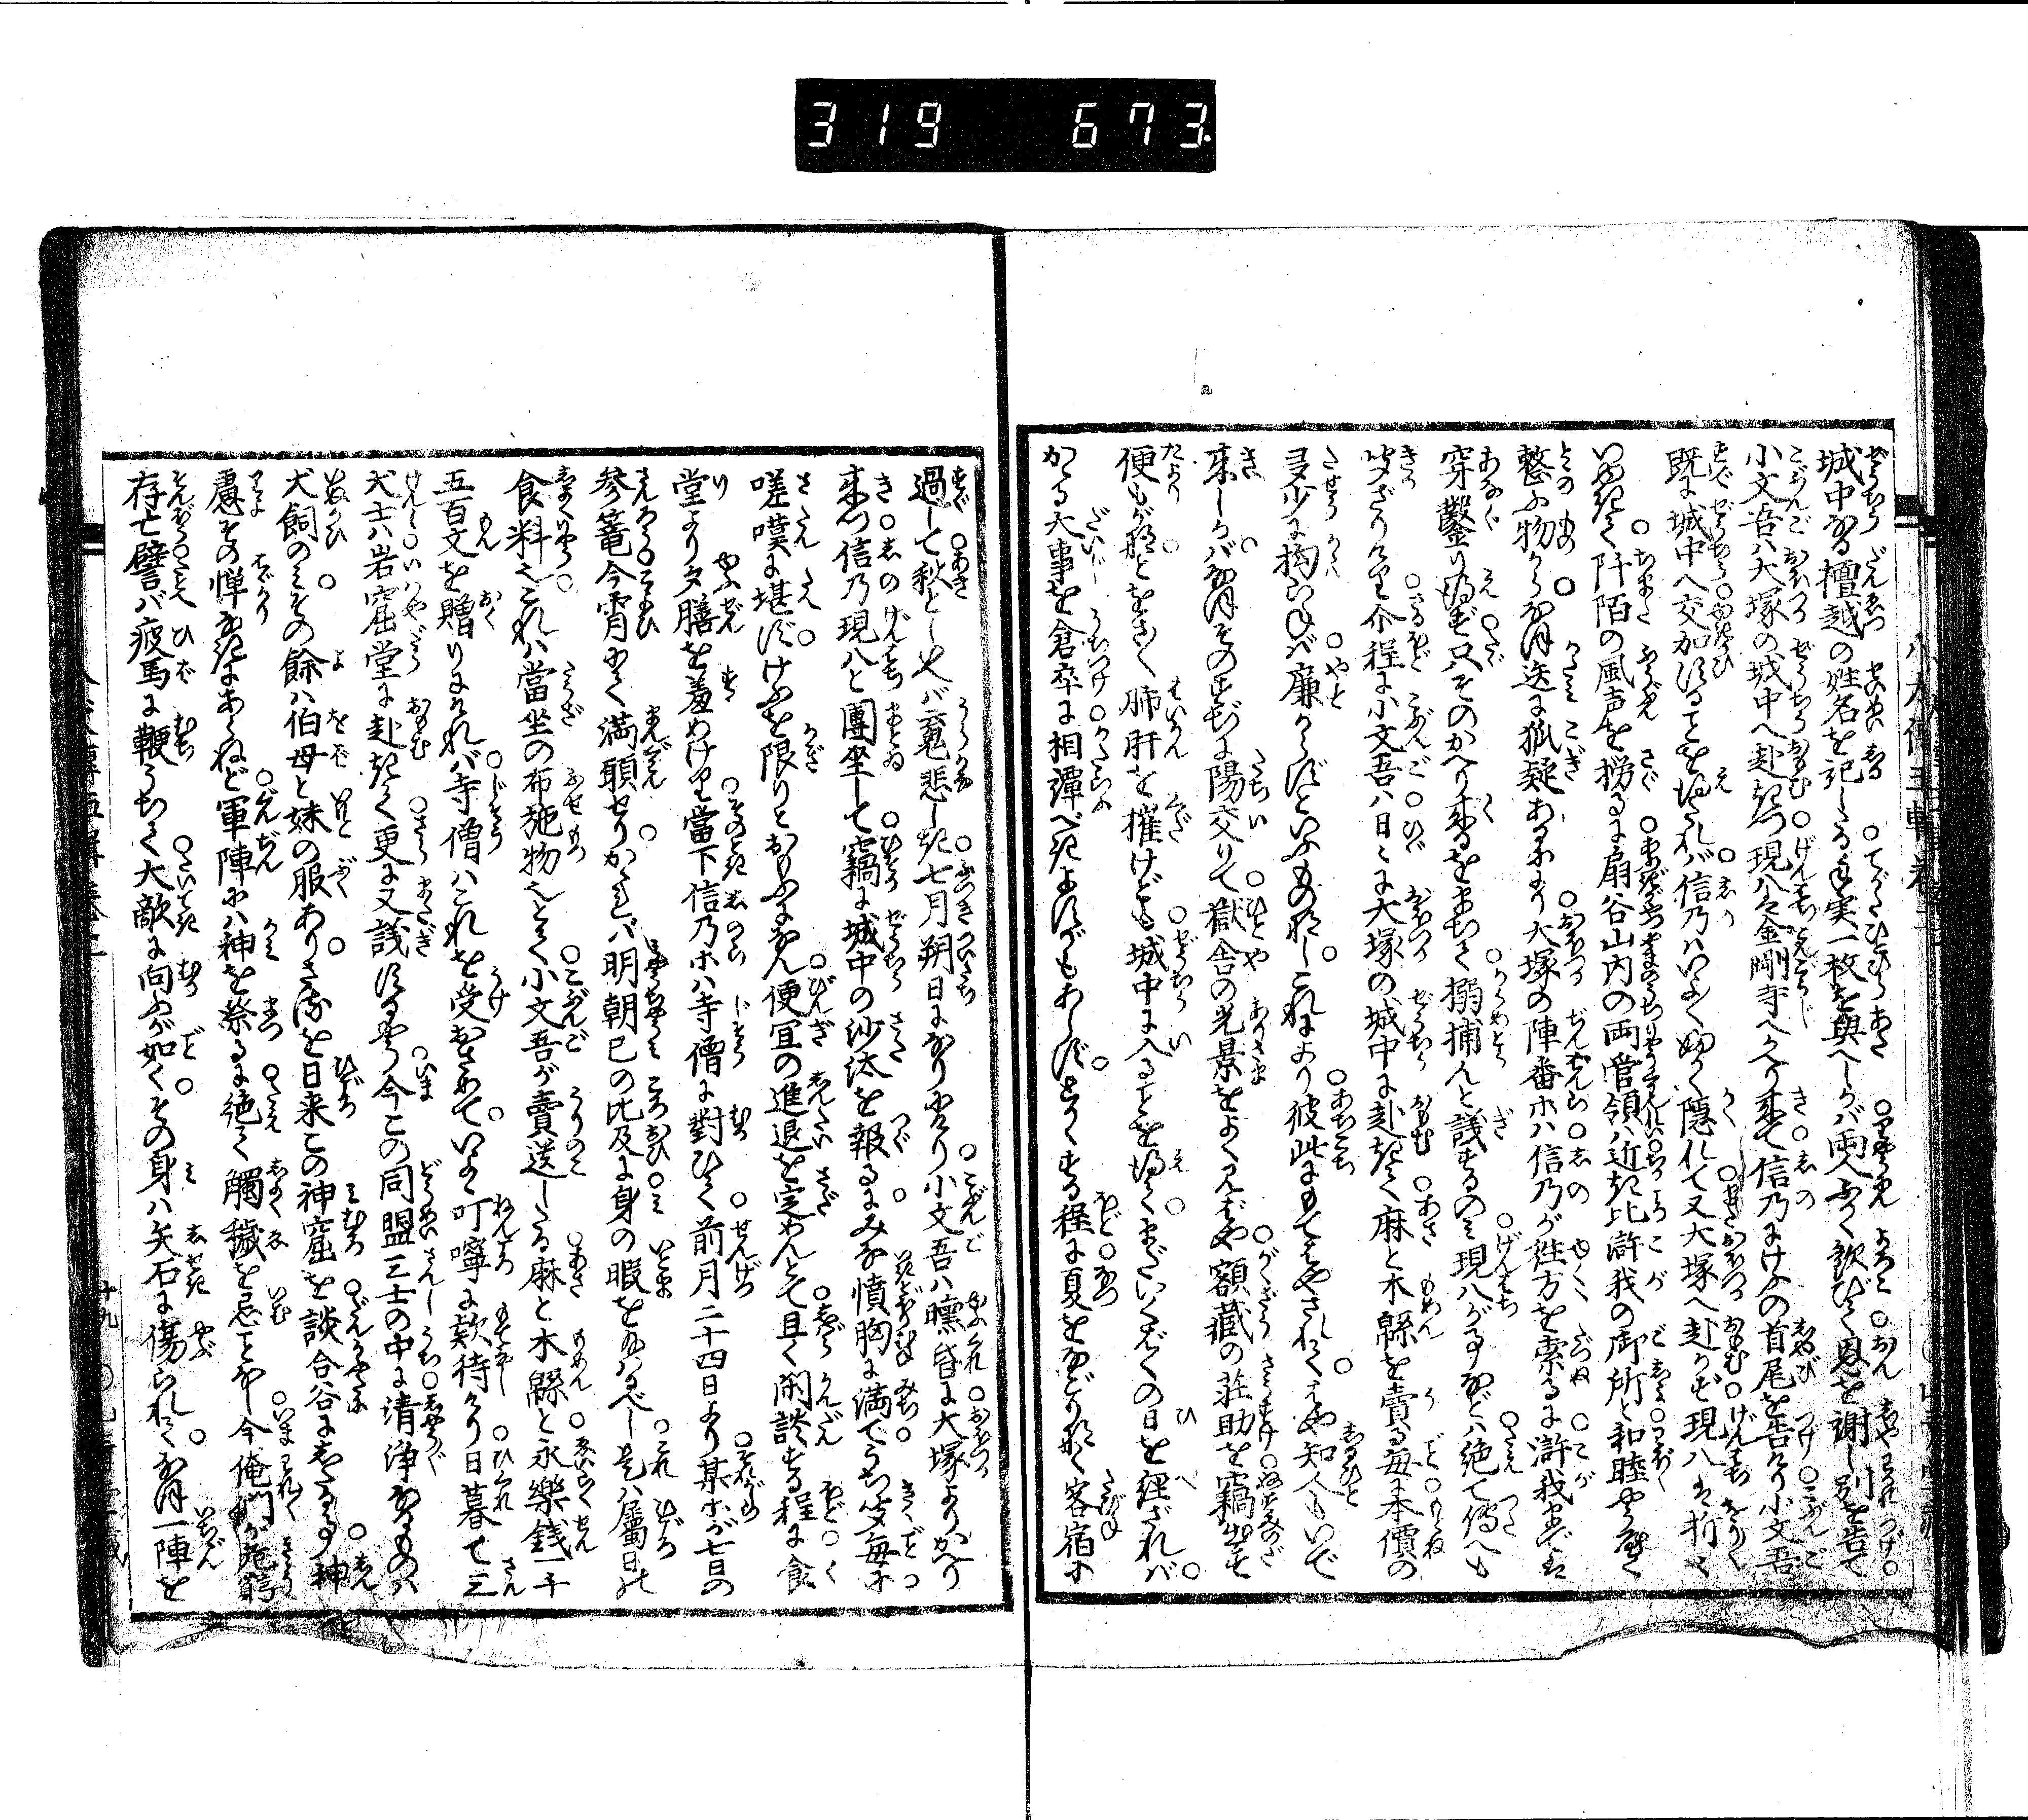 319 673
城中なる檀越の姓名を記したる手実一枚を與へしかバ両人ふかく歓びて恩を謝し別を告て
小文吾ハ大塚の城中へ赴き現八ハ金剛寺へかへり来て信乃にけふの首尾を告けり小文吾
既に城中へ交加することを得たれバ信乃ハいよゝ深く隠れて又大塚へ赴かず現八は折々
いゆきて阡陌の風声を撈るに扇谷山内の両管領ハ近き比滸我の御所と和睦やうやく
整ふ物からなほ迭に狐疑あるにより大塚の陣番ホハ信乃が往方を索るに滸我まではえ
穿鑿り得ず只そのかへり来るをまちて搦捕んと議するのミ現八が事などハ絶て傳へも
聞ざりけり介程に小文吾ハ日々に大塚の城中に赴きて麻と木緜を賣る毎に本價の
多少に拘らねバ廉からずといふものなしこれにより彼此にもてはやされてはや知人もいで
来しかバなほその事に陽交りて獄舎の光景をよく見ばや額藏の荘助を竊出す
便もがなとをさ〳〵肺肝を摧けども城中に入ることを得てまだいくばくの日を経ざれバ
かゝる大事を倉卒に相譚べきよすがもあらずとかくする程に夏をなごりなく客宿に
過して秋としいへバうら悲しき七月朔日になりにけり小文吾ハ曛昏に大塚よりかへり
来つ信乃現八と團坐して竊に城中の沙汰を報るにみな憤胸に満てうち聞毎に
嗟嘆に堪ずけふを限りとおもふになん便宜の進退を定めんとて且く閑談する程に食
堂より夕膳を羞めけり當下信乃ホハ寺僧に對ひて前月二十四日より某ホが七日の
參篭今宵にて満願せりかゝれバ明朝巳の比及に身の暇を給ハるべし是ハ屬日の
食料也これハ當坐の布施物也とて小文吾が賣送したる麻と木緜と永樂銭一千
五百文を贈りにけれバ寺僧ハこれを受おさめていよゝ叮嚀に款待けり日暮て三
犬士ハ岩窟堂に赴きて更に又議するやう今この同盟三士の中に清浄なるものハ
犬飼のミその餘ハ伯母と妹の服ありさるを日来この神窟を談合谷にしたる事神
慮その憚なきにあらねど軍陣にハ神を祭るに絶て觸穢を忌ことなし今俺們が危窮
存亡譬バ疲馬に鞭うちて大敵に向ふが如くその身ハ矢石に傷られてなほ一陣を
十九